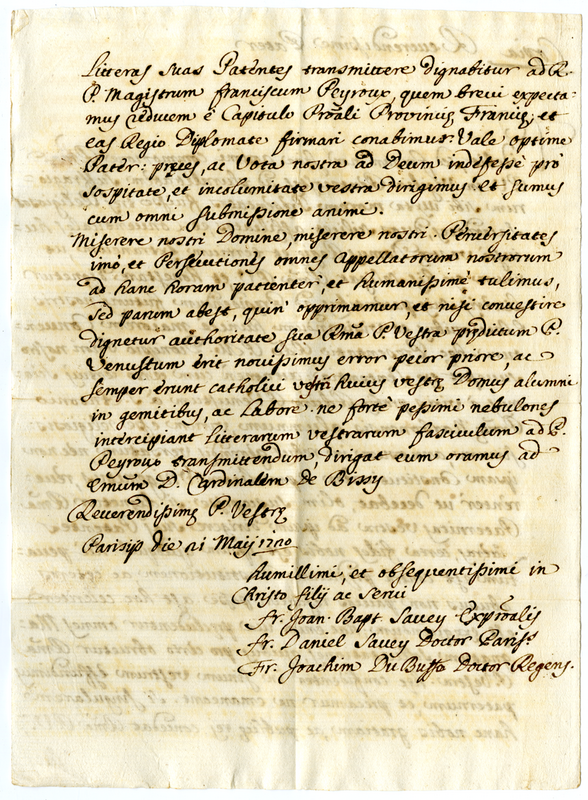 Litteras suas Patentes transmittere dignabitur ad R.
P. Magistrum franciscum Peyroux, quem brevi expecta-
mus reducem è Capitulo Prōali Provincię Francię; et
eas Regio Diplomate firmari conabimur. Vale optime
Pater: preces, ac Vota nostra ad Deum indefesse pro
sospitate, et incolumitate vestra dirigimus et sumus
cum omni submissione animi.
Miserere nostri Domine, miserere nostri. Perversitates
imò, et Persecutiones omnes Appellatorum nostrorum
ad hanc horam patienter, et humanissimè tulimus,
sed parum abest, quin opprimamur, et nisi convestire
dignetur authoritate sua Rm̄a P. Vestra prędictum P.
Venustum erit novissimus error peior priore, ac
semper erunt catholici huius vestrę Domus alumni
in gemitibus, ac Labore. ne fortè pessimi nebulones
intercipiant Litterarum vestrarum fasciculum ad P.
Peyroux transmittendum, dirigat eum oramus ad
Emum D. Cardinalem de Bissy
Reverendissimę P. Vestrę
Parisijs die 21 Maij 1720
Humillimi, et obsequentissimi in
Christo filij ac servi
fr. Joan. Bapt Savey Exprōalis
fr. Daniel Savey Doctor Paris.
Fr. Joachim Du Doctor Regens.